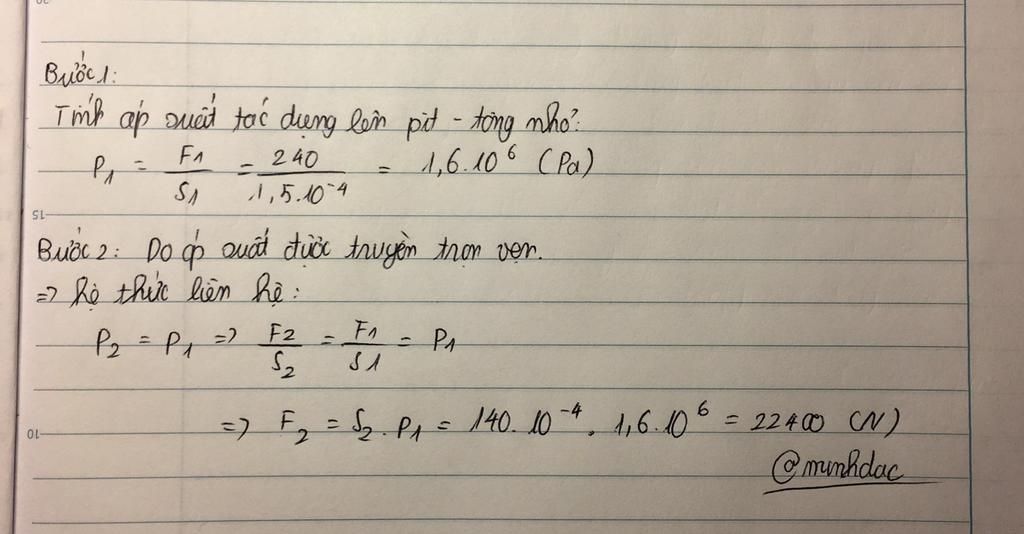 Bước 1:
Tính áp suất tác dụng lên pít - tông nhỏ:
P₁ = F₁/S₁ = 240/1,5.10⁻⁴ = 1,6.10⁶ (Pa)
15
Bước 2: Do áp suất được truyền trọn vẹn.
=> hệ thức liên hệ:
P₂ = P₁ => F₂/S₂ = F₁/S₁ = P₁
10
=> F₂ = S₂ . P₁ = 140. 10⁻⁴ . 1,6.10⁶ = 22400 (N)
@minhdac